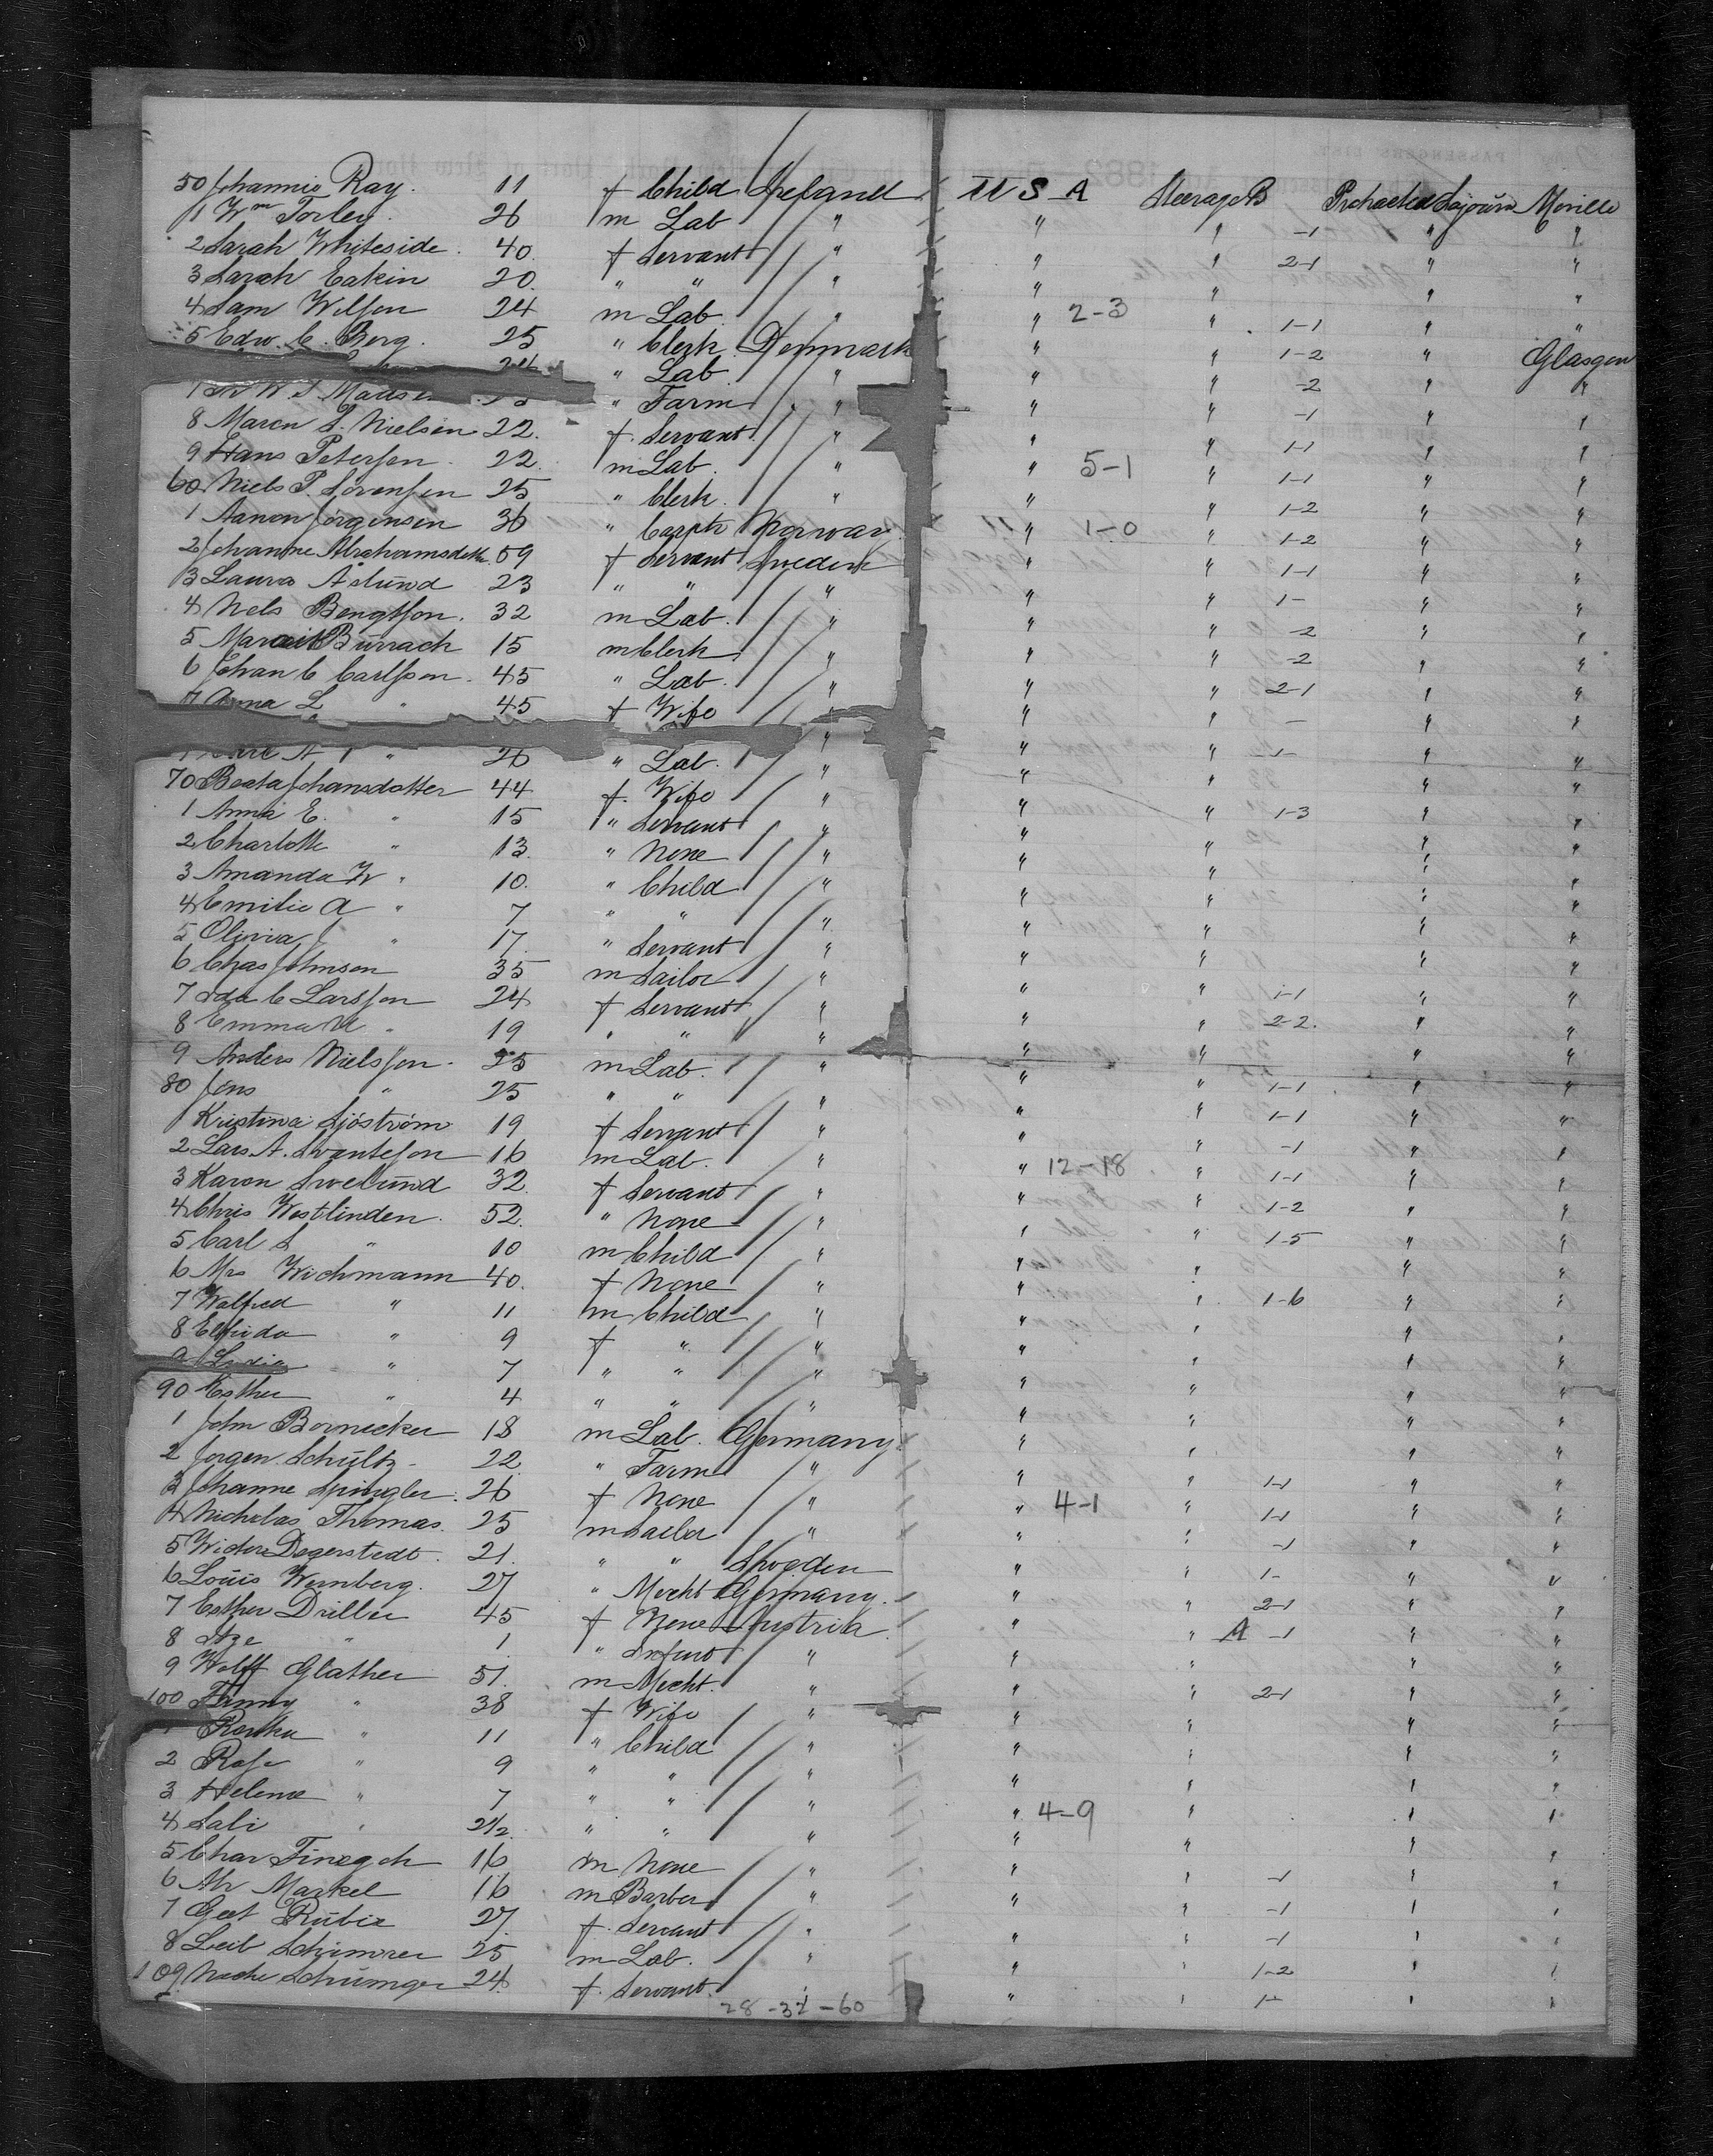 50 Johannie Ray. 11 f Child Ireland U S A Steerage B Protracted Sojourn Moville
1 Wm Torley. 26 m Lab " " " -1 " "
2 Sarah Whiteside. 40. f Servant " " " 2-1 " "
3 Sarah Eakin 20. " " " " " " "
4 Sam Wilson 24 m Lab. " " 2-3 " 1-1 " "
5 Edw. C. Berg. 25 " Clerk Denmark " " 1-2 " Glasgow
" Lab. " " " -2 " "
" Farm " " " -1 " "
8 Maren S. Nielsen 22. f. Servant " " " 1-1 " "
9 Hans Petersen. 22. m Lab. " " 5-1 " 1-1 " "
60 Niels P. Sorensen 25 " Clerk. " " " 1-2 " "
1 Aanon Jorgensen 36 " Carptr Norway " 1-0 " 1-2 " "
2 Johanne Abrahamsdottr. 59 f Servant Sweden " 1-1 " "
3 Laura Aslund 23 " " " " " 1- " "
4 Nels Bengtson. 32 m Lab. " " " -2 " "
5 Burrach 15 m Clerk " " " -2 " "
6 Johan C Carlsson. 45 " Lab. " " " 2-1 " "
7 Anna L " 45 f Wife " " " - " "
A " 26 " Lab. " " " 1- " "
70 Beata Johansdotter 44 f. Wife " " " " "
1 Anna E. " 15 " Servant " " " 1-3 " "
2 Charlotte " 13. " None " " " " "
3 Amanda W " 10. " Child " " " " "
4 Emilie A " 7 " " " " " " "
5 Olivia " 17. " Servant " " " " "
6 Chas Johnson 35 m Sailor " " " " "
7 Ida C Larsson 24 f Servant " " " 1-1 " "
8 Emma " 19 " " " " " 2-2. " "
9 Anders Nielsson. 25 m Lab. " " " " "
80 Jens " 25 " " " " " 1-1 " "
1 Kristina Sjöström 19 f Servant " " " 1-1 " "
2 Lars A. Svanteson 16 m Lab. " " 12-18 " -1 " "
3 Karen Svelund 32. f Servant " " " 1-1 " "
4 Chris Westlinden. 52. " None " " " 1-2 " "
5 Carl S " 10 m Child " " " 1-5 " "
6 Mrs Wichmann 40. f None " " " " "
7 Walfred " 11 m Child " " " 1-6 " "
8 Elfrida " 9 f " " " " " "
9 Lydia " 7 " " " " " " "
90 Esther " 4 " " " " " " "
1 John Bornecker 18 m Lab. Germany " " " "
2 Jorgen Schultz 22 " Farm " " " 1-1 " "
3 Johanne Spingler. 26 f None " " 4-1 " 1-1 " "
4 Nicholas Thomas. 25 m Sailor " " " -1 " "
5 Degerstedt. 21. " " Sweden " " 1- " "
6 Louis Wernberg. 27 " Mecht Germany. " " 2-1 " "
7 Esther Driller 45 f None Austria " " A -1 " "
8 " 1. " Infant " " " " "
9 Wolff Glather 51. m Mecht. " " " 2-1 " "
100 Fanny " 38 f Wife " " " " "
1 " 11 " Child " " " " "
2 Rosa " 9 " " " " " " "
3 Helena " 7 " " " " " " "
4 Sali " 2½ " " " " 4-9 " " "
5 Char 16 m None " " " " "
6 Markel 16 m Barber " " " -1 " "
7 27. f. Servant " " " -1 " "
8 Leib 25 m Lab. " " " -1 " "
109 24. f. Servant. " " 1-2 " "
28-32-60